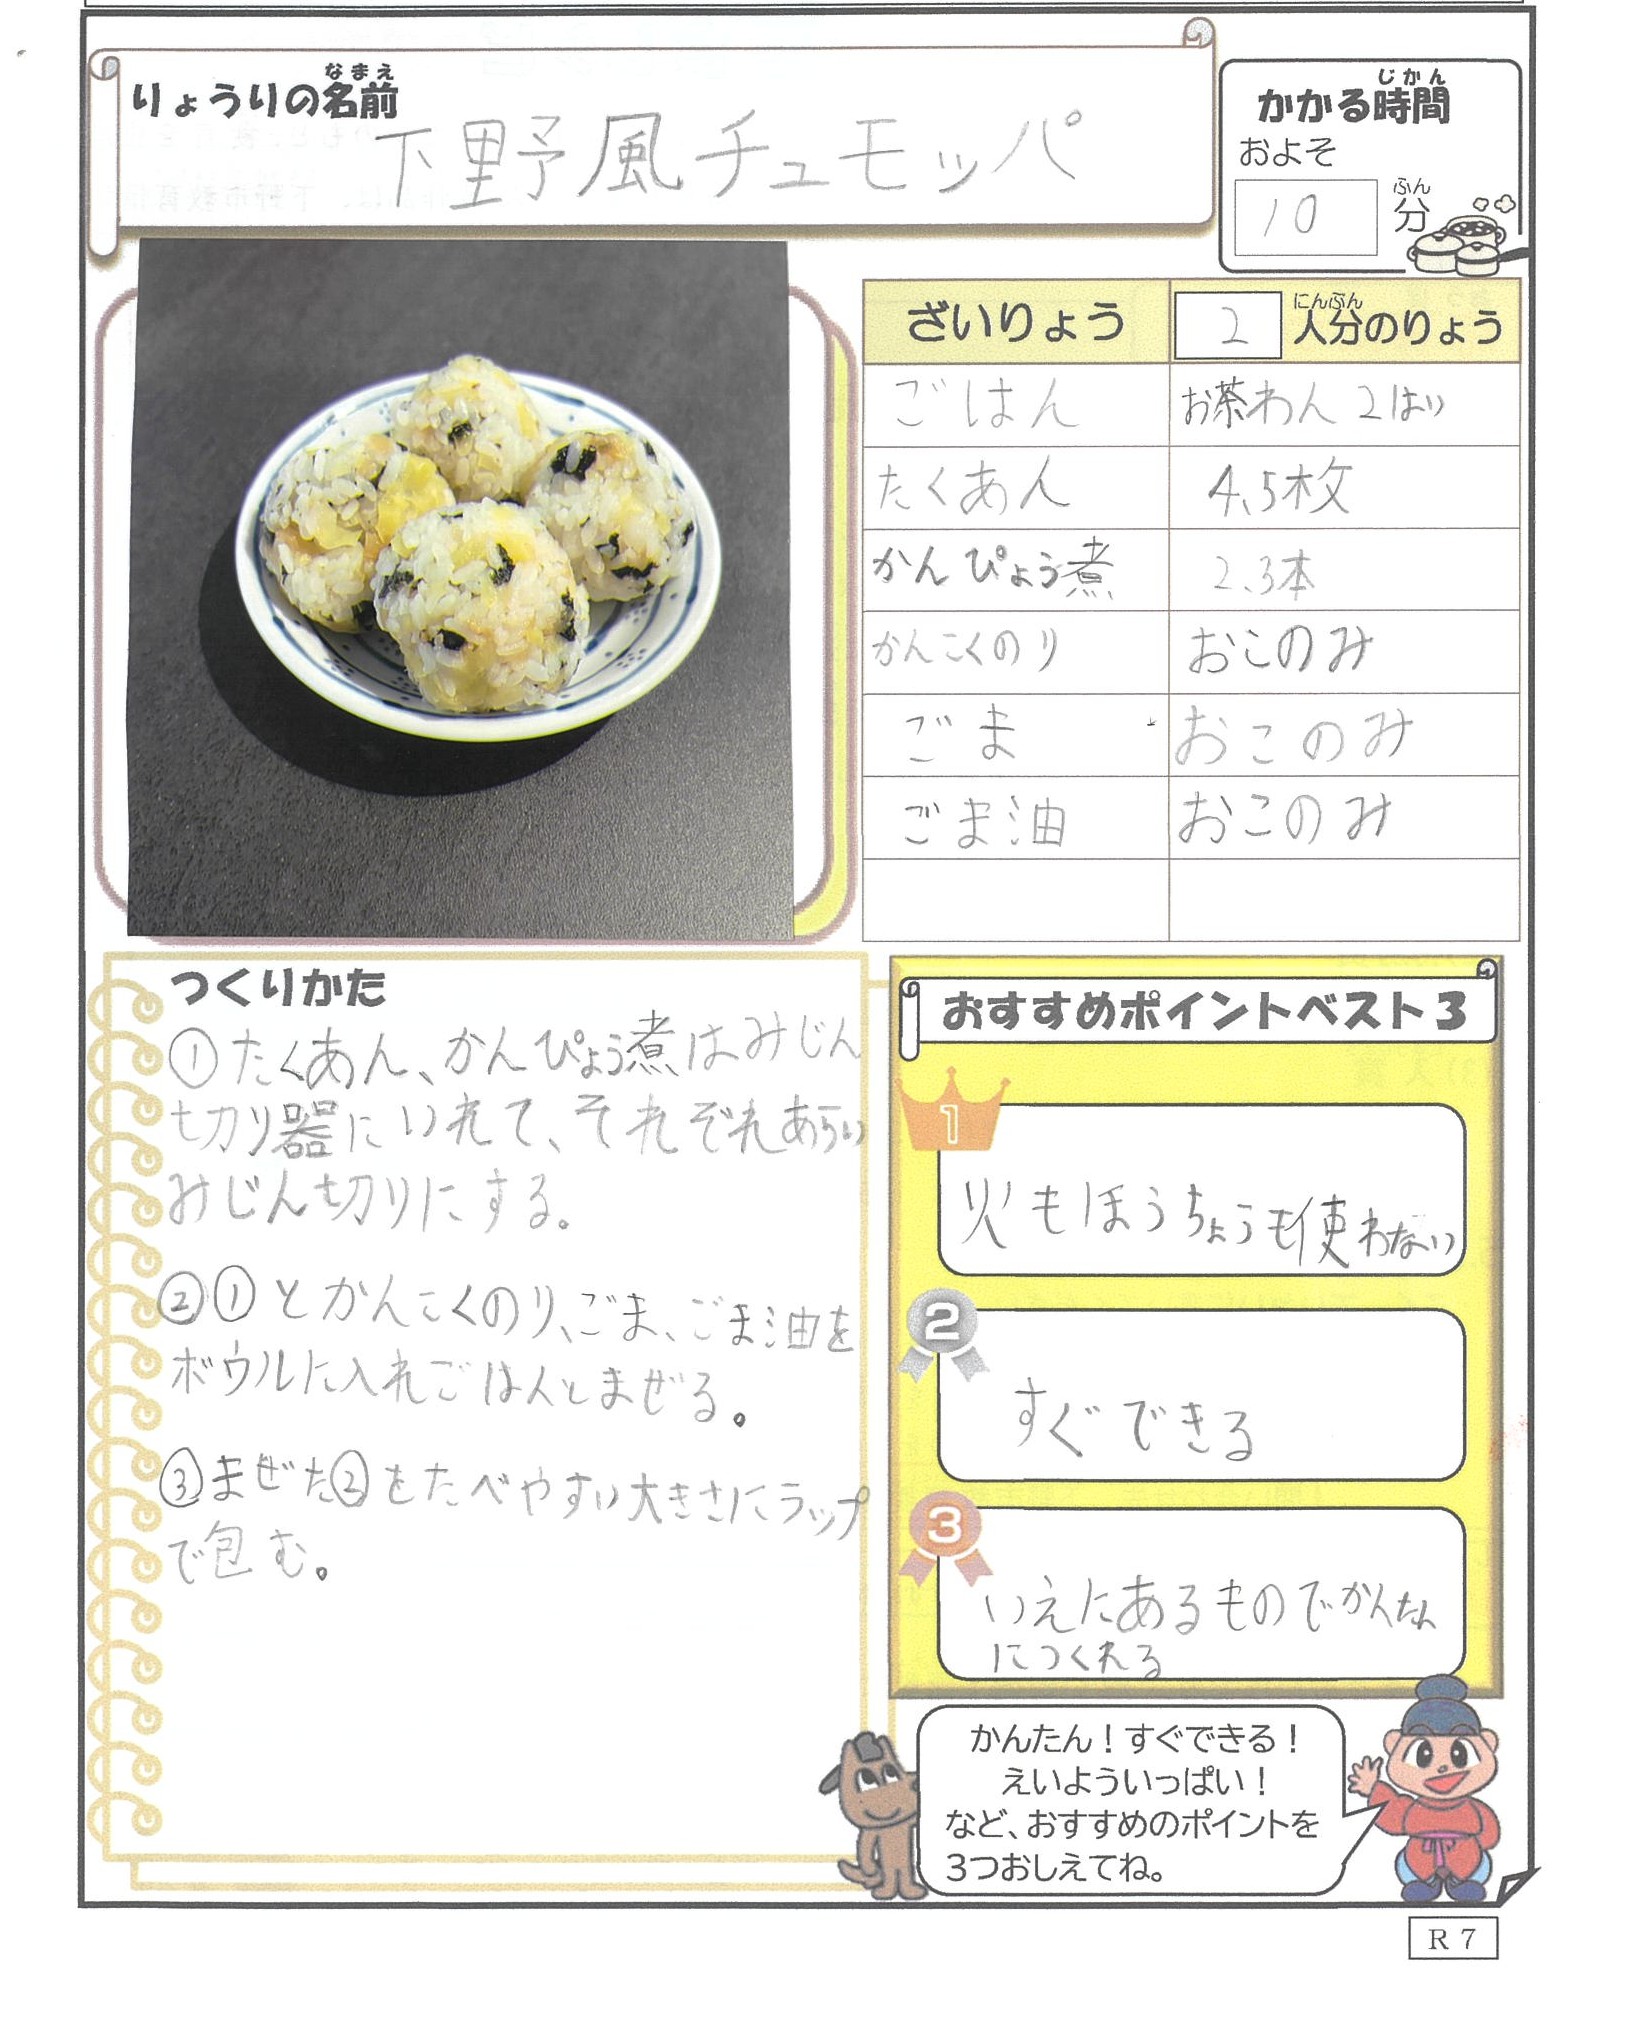 りょうりの名前
なまえ
下野風チュモッパ
かかる時間
じかん
およそ
10 分
ふん
ざいりょう 2 人分のりょう
にんぶん
ごはん お茶わん2はい
たくあん 4、5枚
かんぴょう煮 2、3本
かんこくのり おこのみ
ごま おこのみ
ごま油 おこのみ
つくりかた
①たくあん、かんぴょう煮はみじん
切り器にいれて、それぞれあらい
みじん切りにする。
②①とかんこくのり、ごま、ごま油を
ボウルに入れごはんとまぜる。
③まぜた②をたべやすい大きさにラップ
で包む。
おすすめポイントベスト3
1
火もほうちょうも使わない
2
すぐできる
3
いえにあるものでかんたん
につくれる
かんたん！すぐできる！
えいよういっぱい！
など、おすすめのポイントを
3つおしえてね。
R7